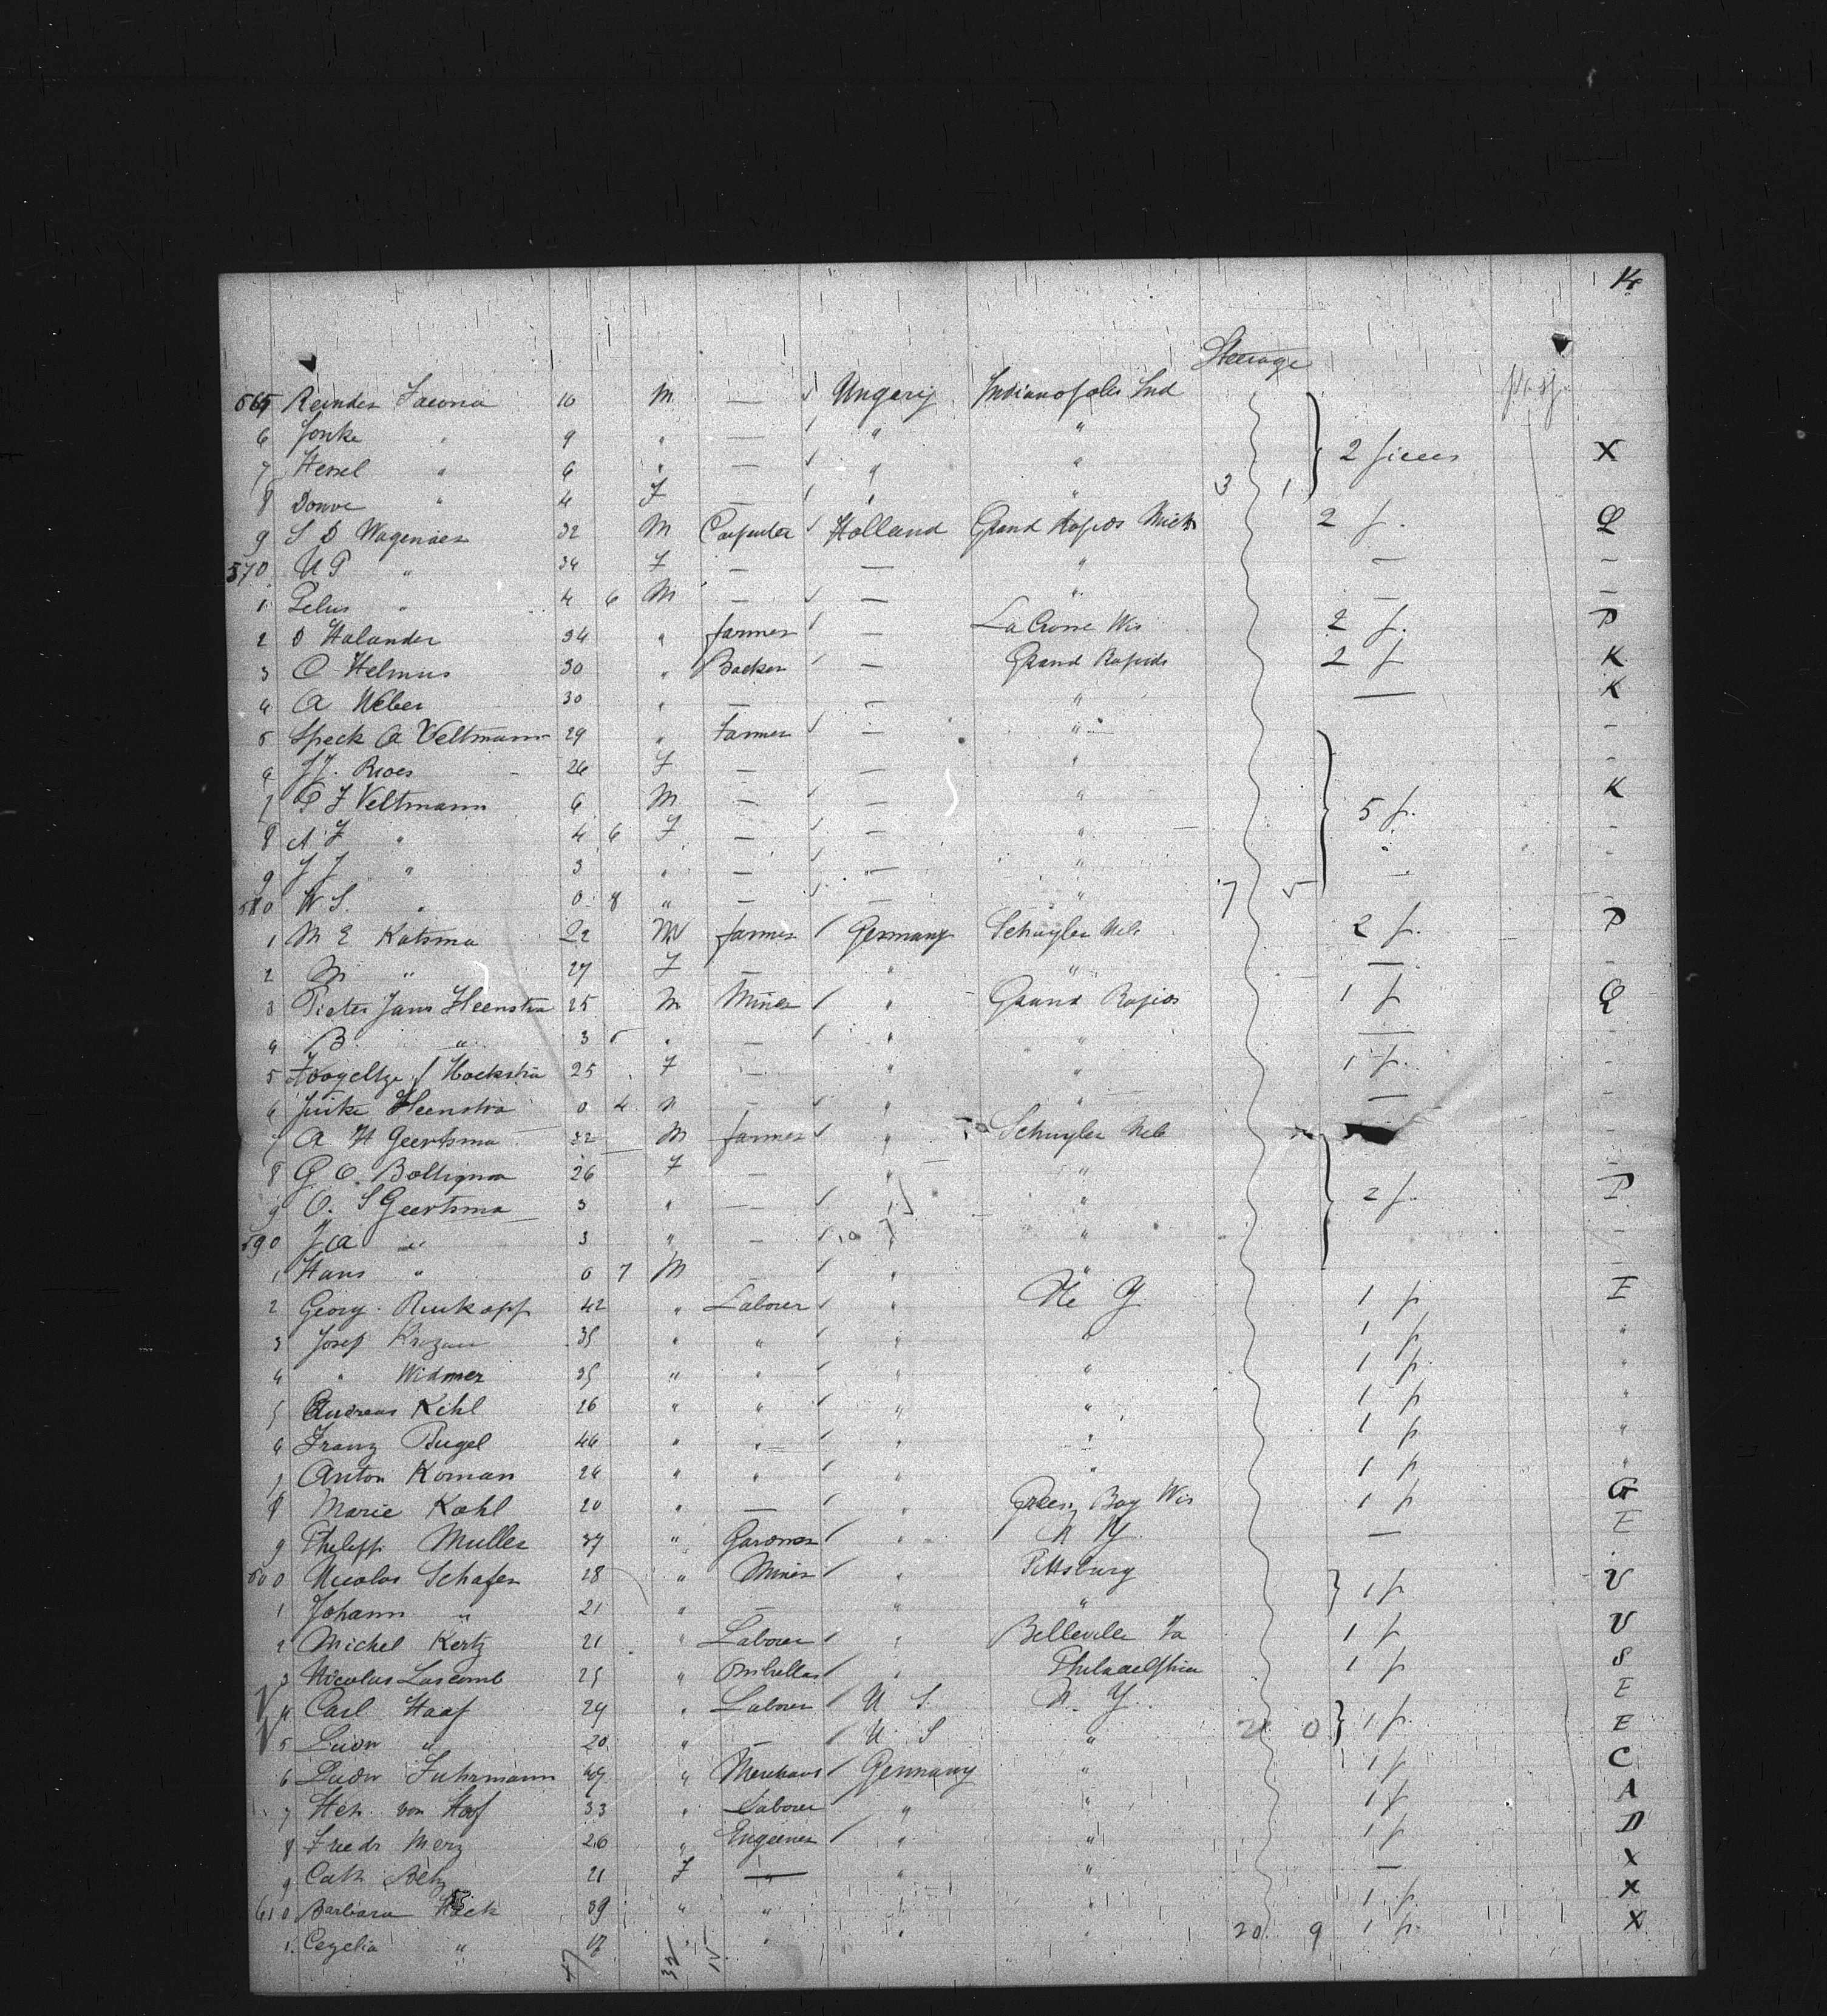 14
Steerage
565 Reinder Tacona 10 M — ✓ Ungarij Indianopolis Ind
6 Jonke " 9 " — ✓ " "
7 Hessel " 6 " — ✓ " " 2 pieces X
8 Douwe " 4 F — ✓ " " 3 1
9 S D Wagenaer 32 M Carpenter ✓ Holland Grand Rapids Mich 2 p.
570 " 34 F — — " — –
1 " 4 6 M — ✓ — " — –
2 D Halander 34 " farmer ✓ — La Crosse Wis 2 p. P
3 C Helmus 30 " Backer ✓ — Grand Rapids 2 p K
4 A Weber 30 " — — " — K
5 Speck A Veltmann 29 " Farmer ✓ — " –
6 26 F — — " –
7 P J Veltmann 6 M — ✓ — " 5 p. K
8 A F " 4 6 F — ✓ — " –
9 J J " 3 " — ✓ — " –
580 W S. " 0 8 " — ✓ — " 7 5
1 M E Katsma 22 M farmer ✓ Germany Schuyler Neb 2 p. P
2 M " 27 F — " " — –
3 Pieter Jans Heenstra 25 M Miner ✓ " Grand Rapids 1 p
4 B. " 3 5 " — ✓ " " — –
5 Hoekstra 25 F — " " 1 p. –
6 Heenstra 0 4 — ✓ " " — –
7 A H Geertsma 32 M farmer ✓ " Schuyler Neb –
8 G C. Boltigna 26 F — " " –
9 O. S Geertsma 3 " — ✓ " " 2 p. P
590 J A " 3 " — ✓ " " –
1 Hans " 0 7 M — ✓ " "
2 Georg Ruckopf 42 " Laborer ✓ " Ne Y 1 p E
3 Josef Krozan 35 " " ✓ " " 1 p "
4 " Widmer 35 " " ✓ " " 1 p. "
5 Andreas Kihl 26 " " ✓ " " 1 p "
6 Franz Bugel 46 " " ✓ " " 1 p "
7 Anton Koman 24 " " ✓ " " 1 p "
8 Marie Kohl 20 " — ✓ " Green Bay Wis 1 p G
9 Philipp Muller 37 " Gardner ✓ " N Y. — E
600 Nicolas Schafer 28 " Miner ✓ " Pittsburg 1 p V
1 Johann " 21 " — " "
2 Michel Kertz 21 " Laborer ✓ " Belleville Pa 1 p V
3 Nicolas Lascomb 25 " Umbrellas ✓ " Philadelphia 1 p S
4 Carl Haaf 24 " Laborer ✓ U S. N. Y. E
5 Ludw " 20 " — ✓ U S " 21 0 1 p. E
6 Ludw Fuhrmann 47 " Merchant ✓ Germany " 1 p C
7 Hch von Hoof 33 " Laborer " " 1 p A
8 Friedr Merz 26 " Engeener ✓ " " 1 p D
9 Cath 21 F — " " — X
610 Barbara Hock 39 " " " " 1 p. X
1. Cezelia " 17 " " " " 20 9 1 p. X
47